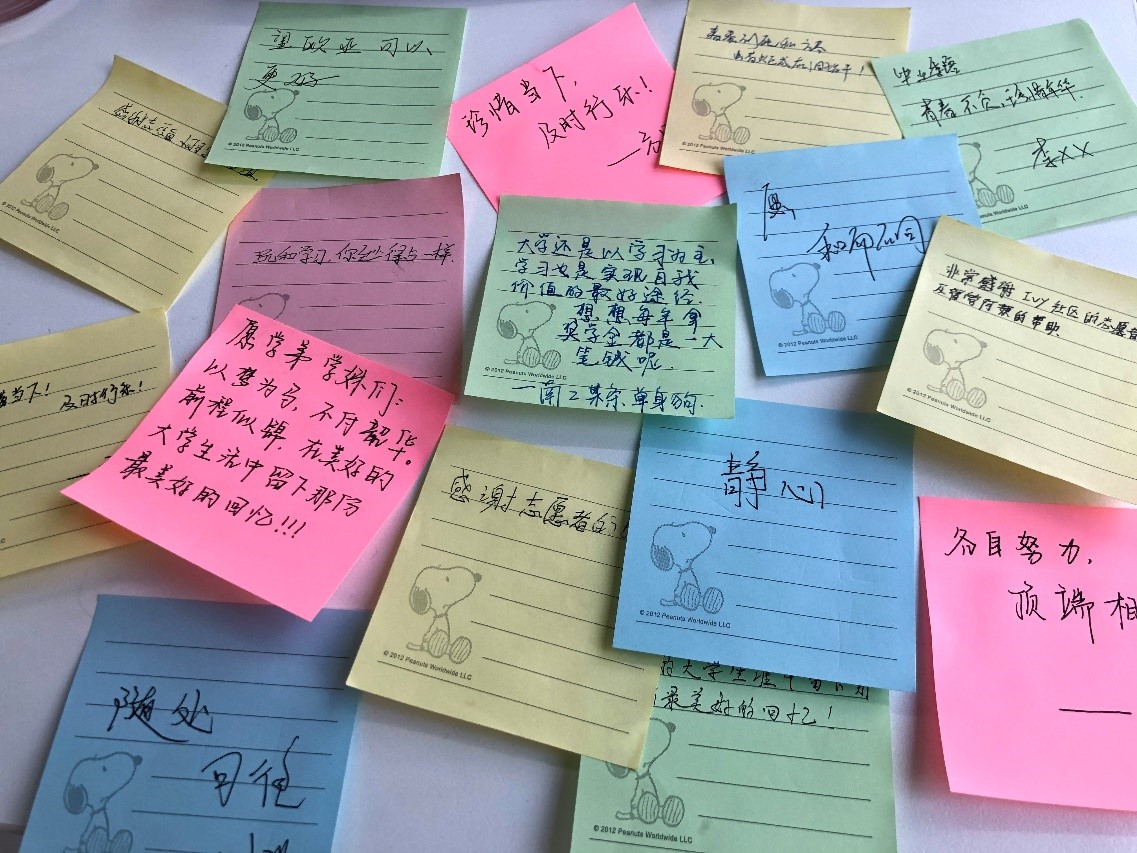 望欧亚可以
更好
© 2012 Peanuts Worldwide LLC
珍惜当下,
及时行乐!
毕业寄语
青春不负,珍惜年华.
李XX
感谢志愿
© 2012 Peanuts Worldwide LLC
© 2012 Peanuts Worldwide LLC
© 2012 Peanuts Worldwide LLC
玩和学习,你必须占一样.
大学还是以学习为主
学习也是实现自我
价值的最好途径.
想想每年拿
奖学金都是一大
笔钱呢
—南工某奈.单身狗.
© 2012 Peanuts Worldwide LLC
愿
和而不同
© 2012 Peanuts Worldwide LLC
非常感谢 Ivy 社区的志愿者
© 2012 Peanuts Worldwide LLC
当下! 及时行乐!
愿学弟学妹们:
以梦为马,不负韶华。
前程似锦,在美好的
大学生活中留下那份
最美好的回忆!!!
感谢志愿者的
© 2012 Peanuts Worldwide LLC
静心
© 2012 Peanuts Worldwide LLC
各自努力,
顶端相
——
随处
可
的大学生涯中留下
最美好的回忆!
© 2012 Peanuts Worldwide LLC